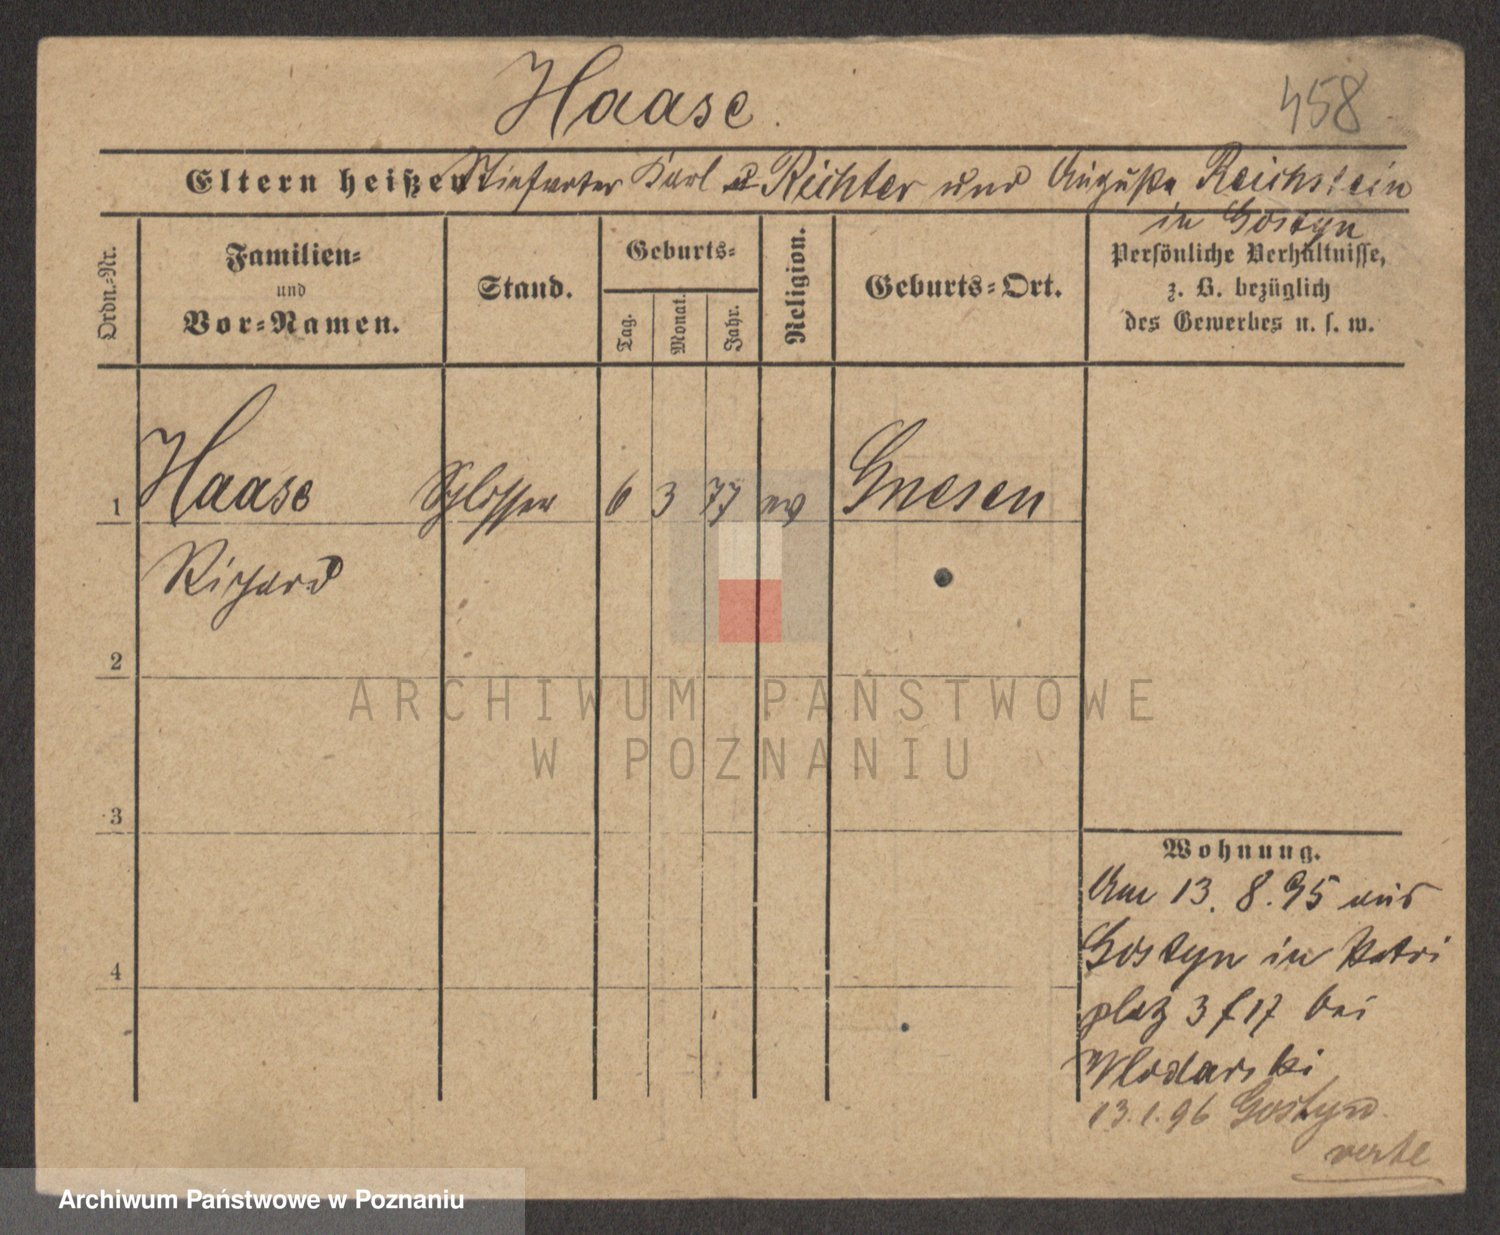 Haase.
458
Eltern heißen Stiefvater Karl Richter und Auguste Reichstein
in Gostyn
Ordn.-Nr.
Familien-
und
Vor-Namen.
Stand.
Geburts-
Tag.
Monat.
Jahr.
Religion.
Geburts-Ort.
Persönliche Verhältnisse,
z. B. bezüglich
des Gewerbes u. s. w.
1 Haase Schlosser 6 3 77 ev Gnesen
Richard
2
3
4
Wohnung.
Am 13. 8. 95 aus
Gostyn in Petri
platz 3 f 17 bei
Wlodarski
13.1.96 Gostyn
verte
ARCHIWUM PAŃSTWOWE
W POZNANIU
Archiwum Państwowe w Poznaniu